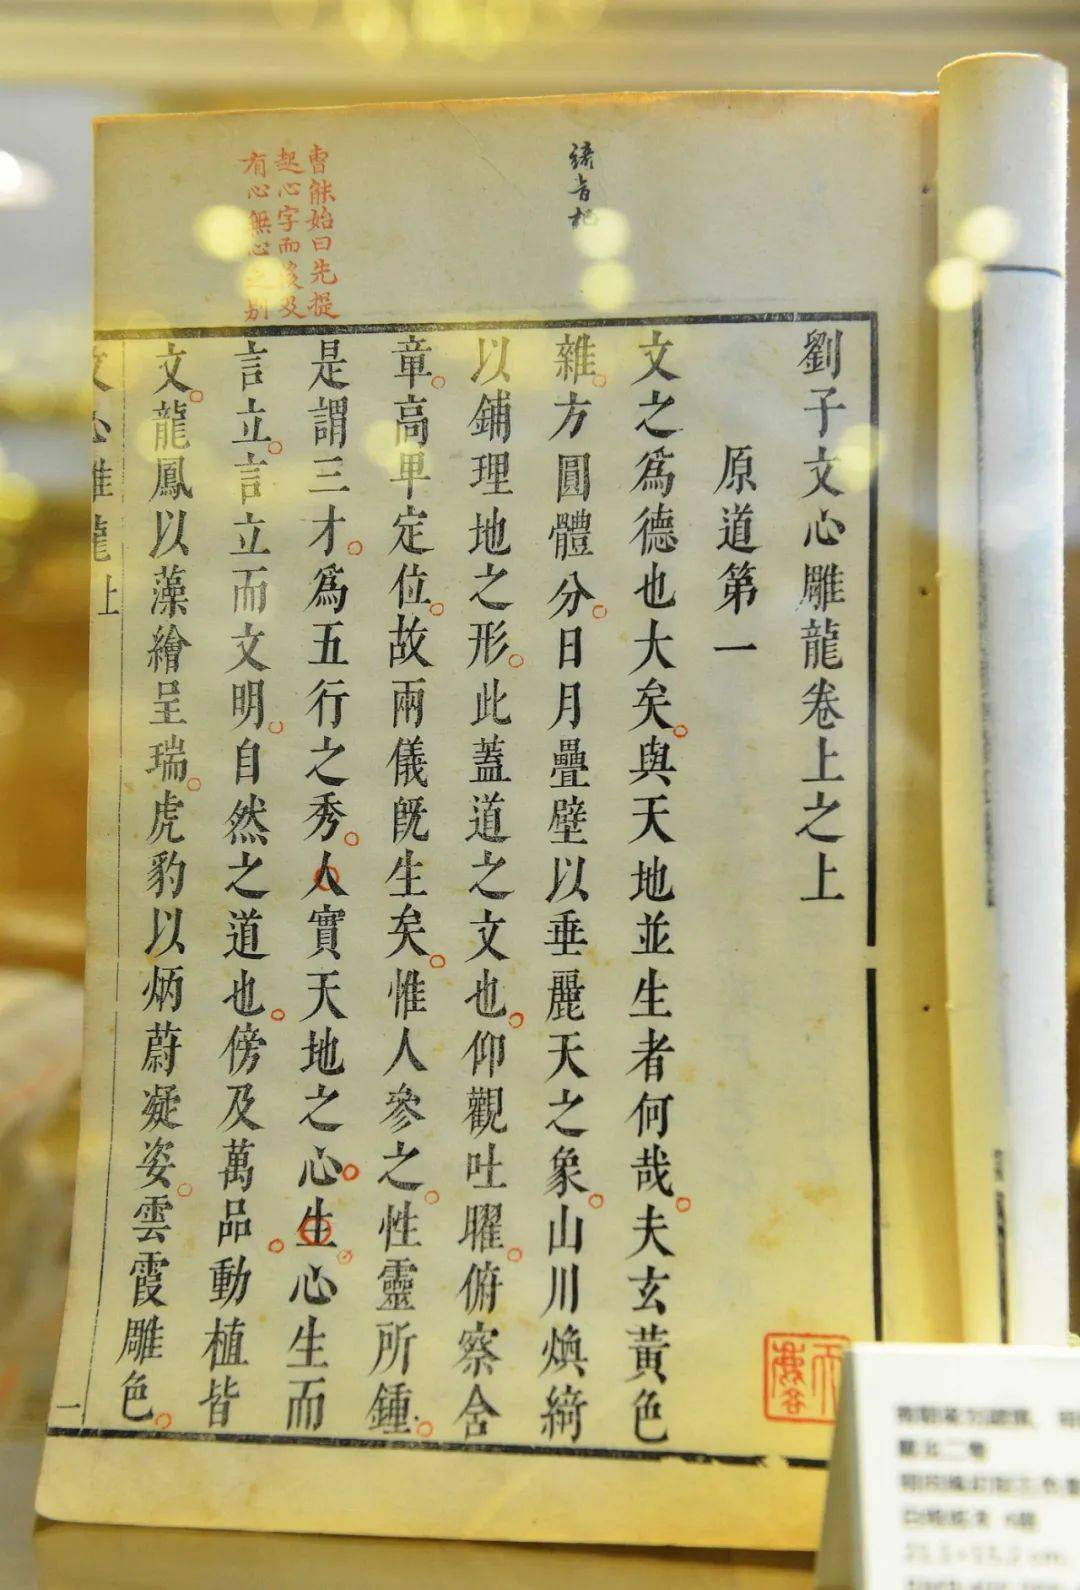 劉子文心雕龍卷上之上
原道第一
文之爲德也大矣與天地並生者何哉夫玄黃色
雜方圓體分日月疊壁以垂麗天之象山川煥綺
以鋪理地之形此蓋道之文也仰觀吐曜俯察含
章高卑定位故兩儀旣生矣惟人參之性靈所鍾
是謂三才爲五行之秀人實天地之心生心生而
言立言立而文明自然之道也傍及萬品動植皆
文龍鳳以藻繪呈瑞虎豹以炳蔚凝姿雲霞雕色
文心雕龍上
一
綺音杞
曹能始曰先提
起心字而後及
有心無心之别